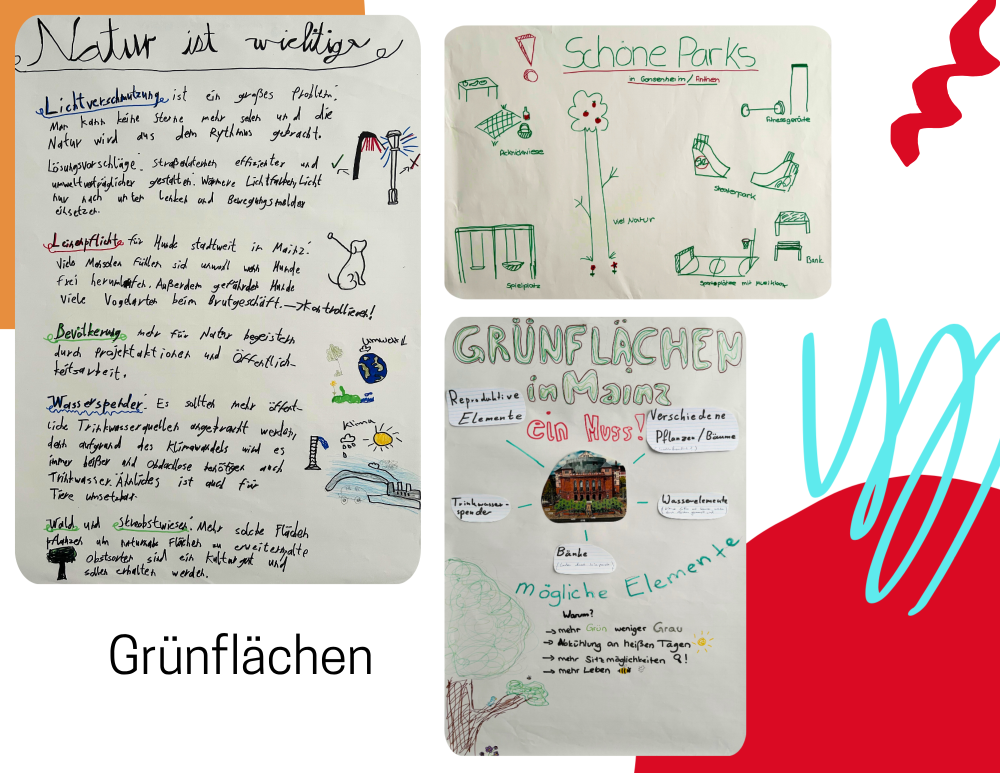 Natur ist wichtig
Lichtverschmutzung ist ein großes Problem:
Man kann keine Sterne mehr sehen und die
Natur wird aus dem Rythmus gebracht.
Lösungsvorschläge: Straßenlaternen effizienter und
umweltverträglicher gestalten. Wärmere Lichtfarben, Licht
nur nach unten lenken und Bewegungsmelder
einsetzen.
Leinenpflicht für Hunde stadtweit in Mainz:
Viele Menschen fühlen sich unwohl wenn Hunde
frei herumlaufen. Außerdem gefährden Hunde
viele Vogelarten beim Brutgeschäft. → Kontrollieren!
Bevölkerung mehr für Natur begeistern
durch Projektaktionen und Öffentlich-
keitsarbeit.
Umwelt
Wasserspender: Es sollten mehr öffent-
liche Trinkwasserquellen angebracht werden,
denn aufgrund des Klimawandels wird es
immer heißer und Obdachlose benötigen auch
Trinkwasser. Ähnliches ist auch für
Tiere umsetzbar.
Klima
Wald und Streuobstwiesen: Mehr solche Flächen
pflanzen um naturnahe Flächen zu erweitern, alte
Obstsorten sind ein Kulturgut und
sollen erhalten werden.
Grünflächen
! Schöne Parks
in Gonsenheim/
Fitnessgeräte
Picknickwiese
Skaterpark
viel Natur
Bank
Spielplatz
Sportplätze mit
GRÜNFLÄCHEN
in Mainz
ein Muss!
Reproduktive
Elemente
Verschiedene
Pflanzen/Bäume
Trinkwasser-
spender
Wasserelemente
Bänke
mögliche Elemente
Warum?
→ mehr Grün weniger Grau
→ Abkühlung an heißen Tagen
→ mehr Sitzmöglichkeiten !
→ mehr Leben